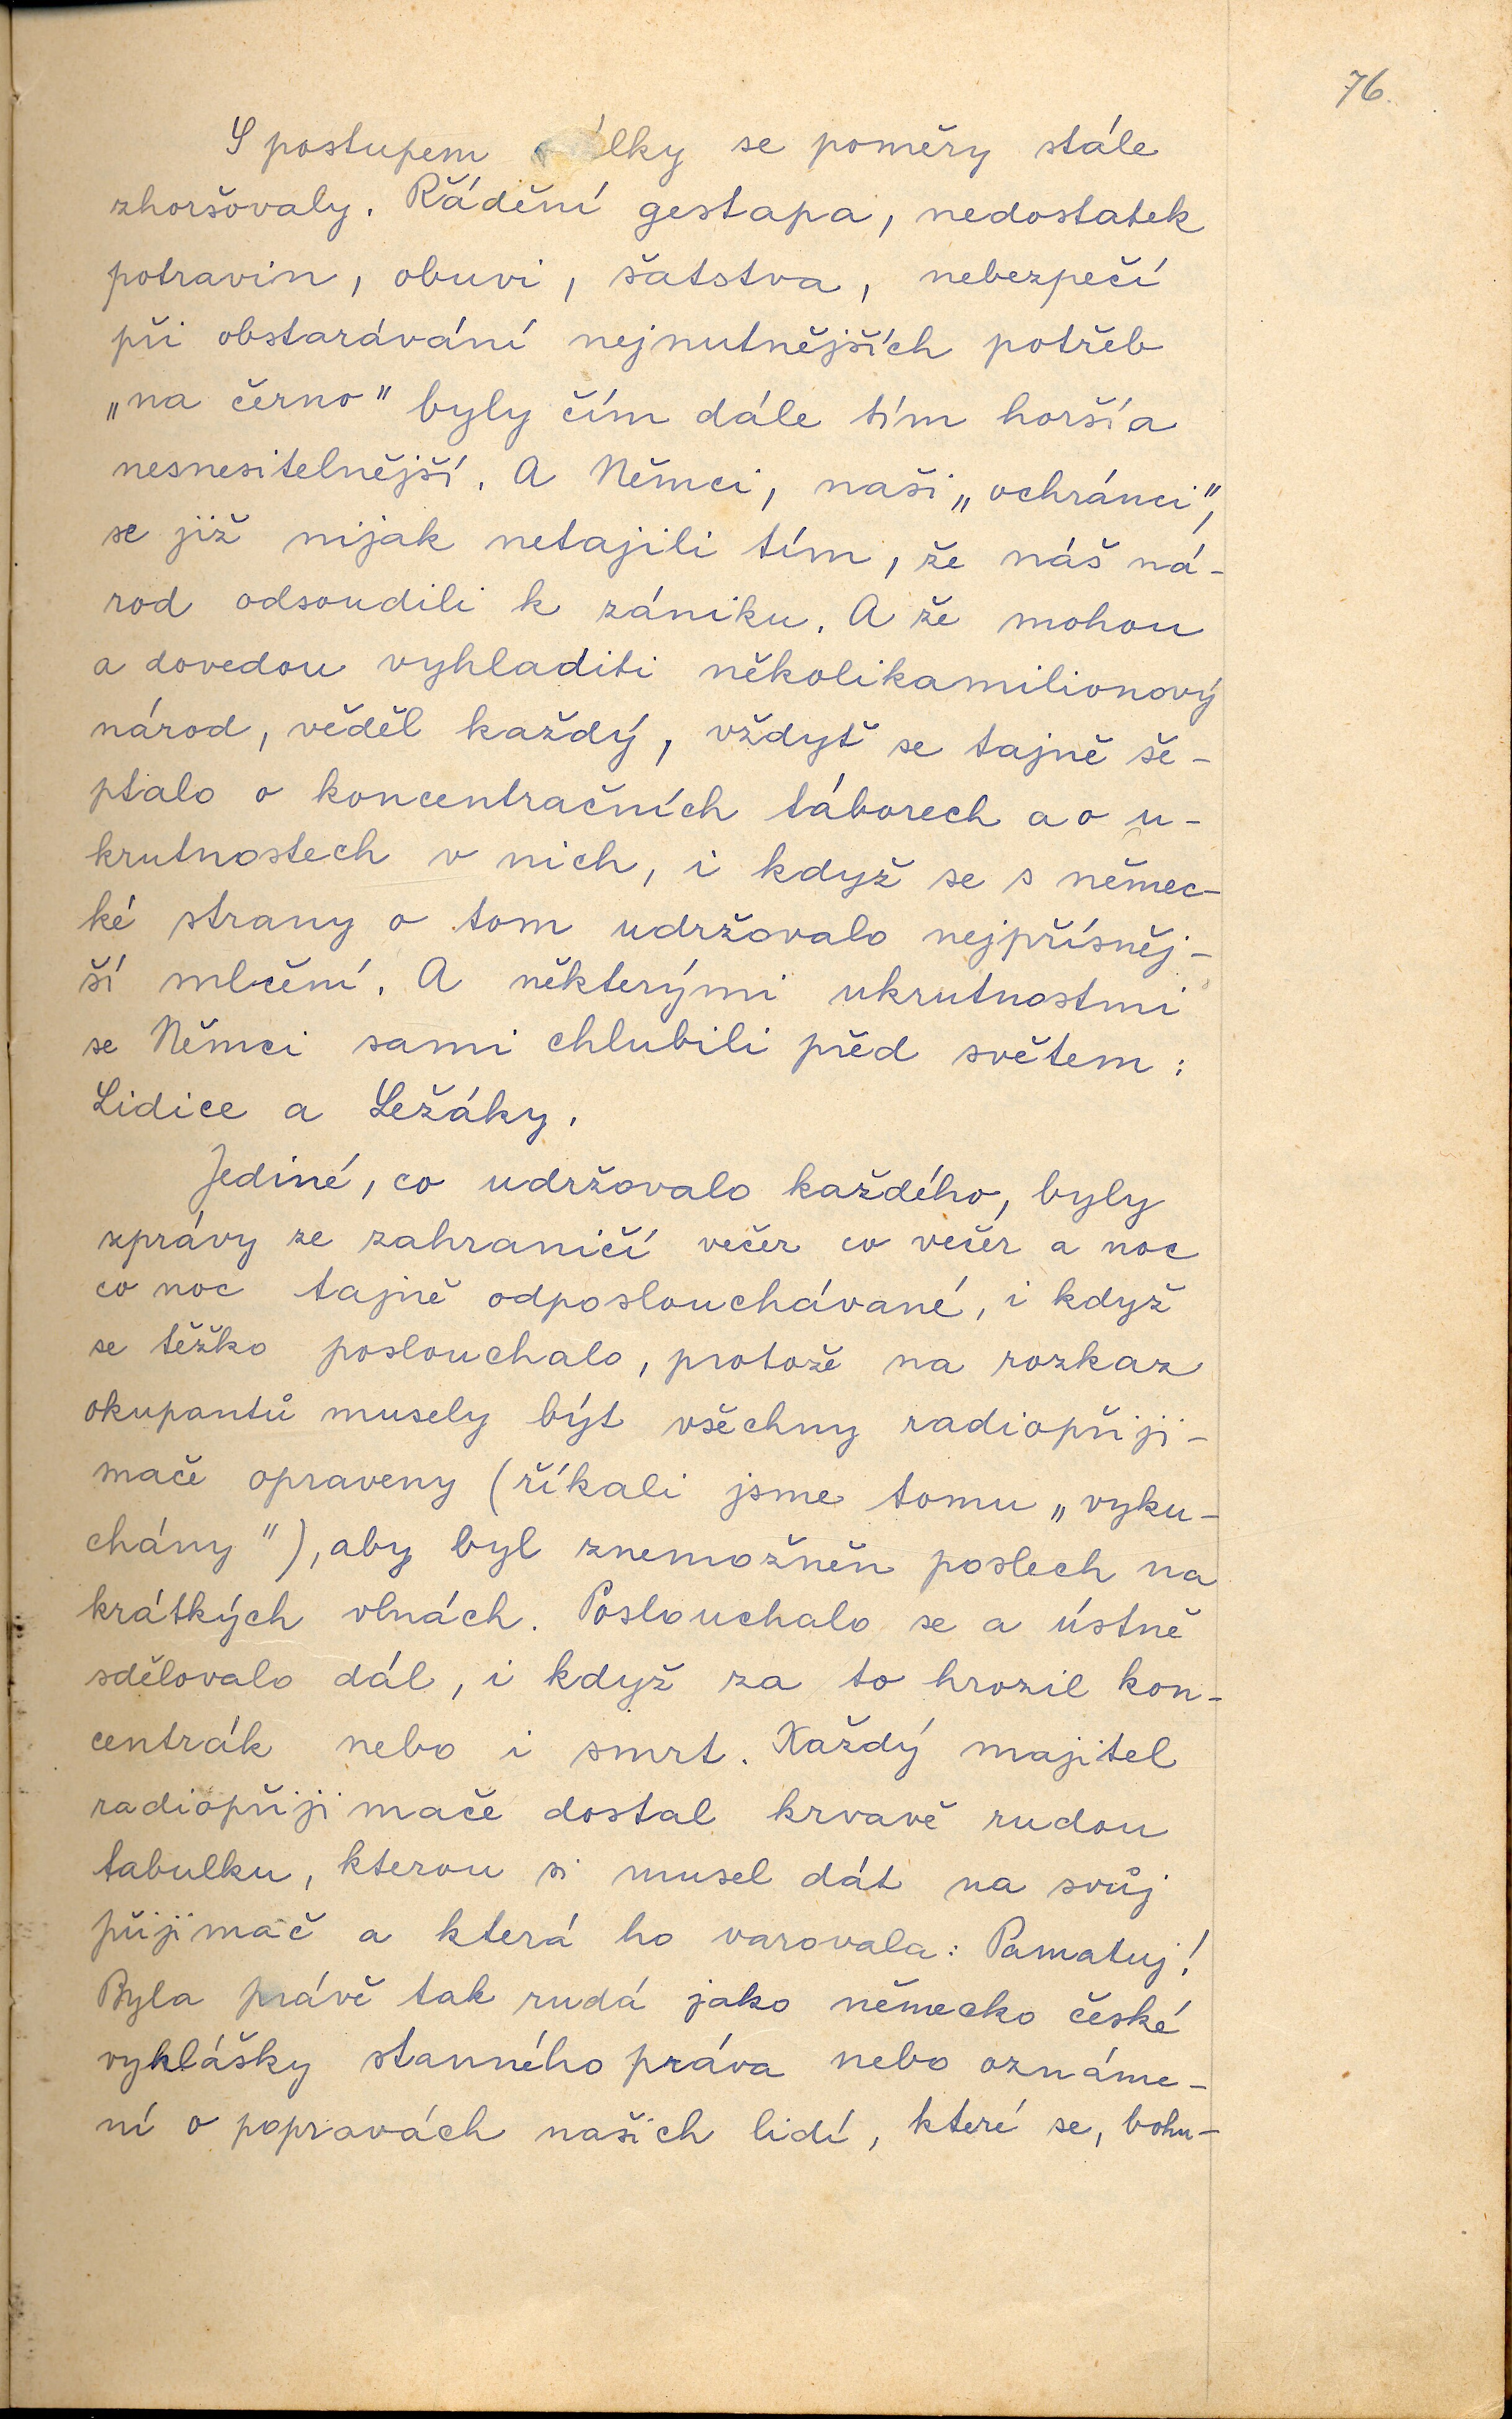 76.
S postupem války se poměry stále
zhoršovaly. Řádění gestapa, nedostatek
potravin, obuvi, šatstva, nebezpečí
při obstarávání nejnutnějších potřeb
„na černo" byly čím dále tím horší a
nesnesitelnější. A Němci, naši „ochránci",
se již nijak netajili tím, že náš ná-
rod odsoudili k zániku. A že mohou
a dovedou vyhladiti několikamilionový
národ, věděl každý, vždyť se tajně še-
ptalo o koncentračních táborech a o u-
krutnostech v nich, i když se s němec-
ké strany o tom udržovalo nejpřísněj-
ší mlčení. A některými ukrutnostmi
se Němci sami chlubili před světem:
Lidice a Ležáky.
Jediné, co udržovalo každého, byly
zprávy ze zahraničí večer co večer a noc
co noc tajně odposlouchávané, i když
se těžko poslouchalo, protože na rozkaz
okupantů musely být všechny radiopřiji-
mače opraveny (říkali jsme tomu „vyku-
chány"), aby byl znemožněn poslech na
krátkých vlnách. Poslouchalo se a ústně
sdělovalo dál, i když za to hrozil kon-
centrák nebo i smrt. Každý majitel
radiopřijimače dostal krvavě rudou
tabulku, kterou si musel dát na svůj
přijimač a která ho varovala: Pamatuj!
Byla právě tak rudá jako německo české
vyklášky stanného práva nebo oznáme-
ní o popravách našich lidí, které se, bohu-